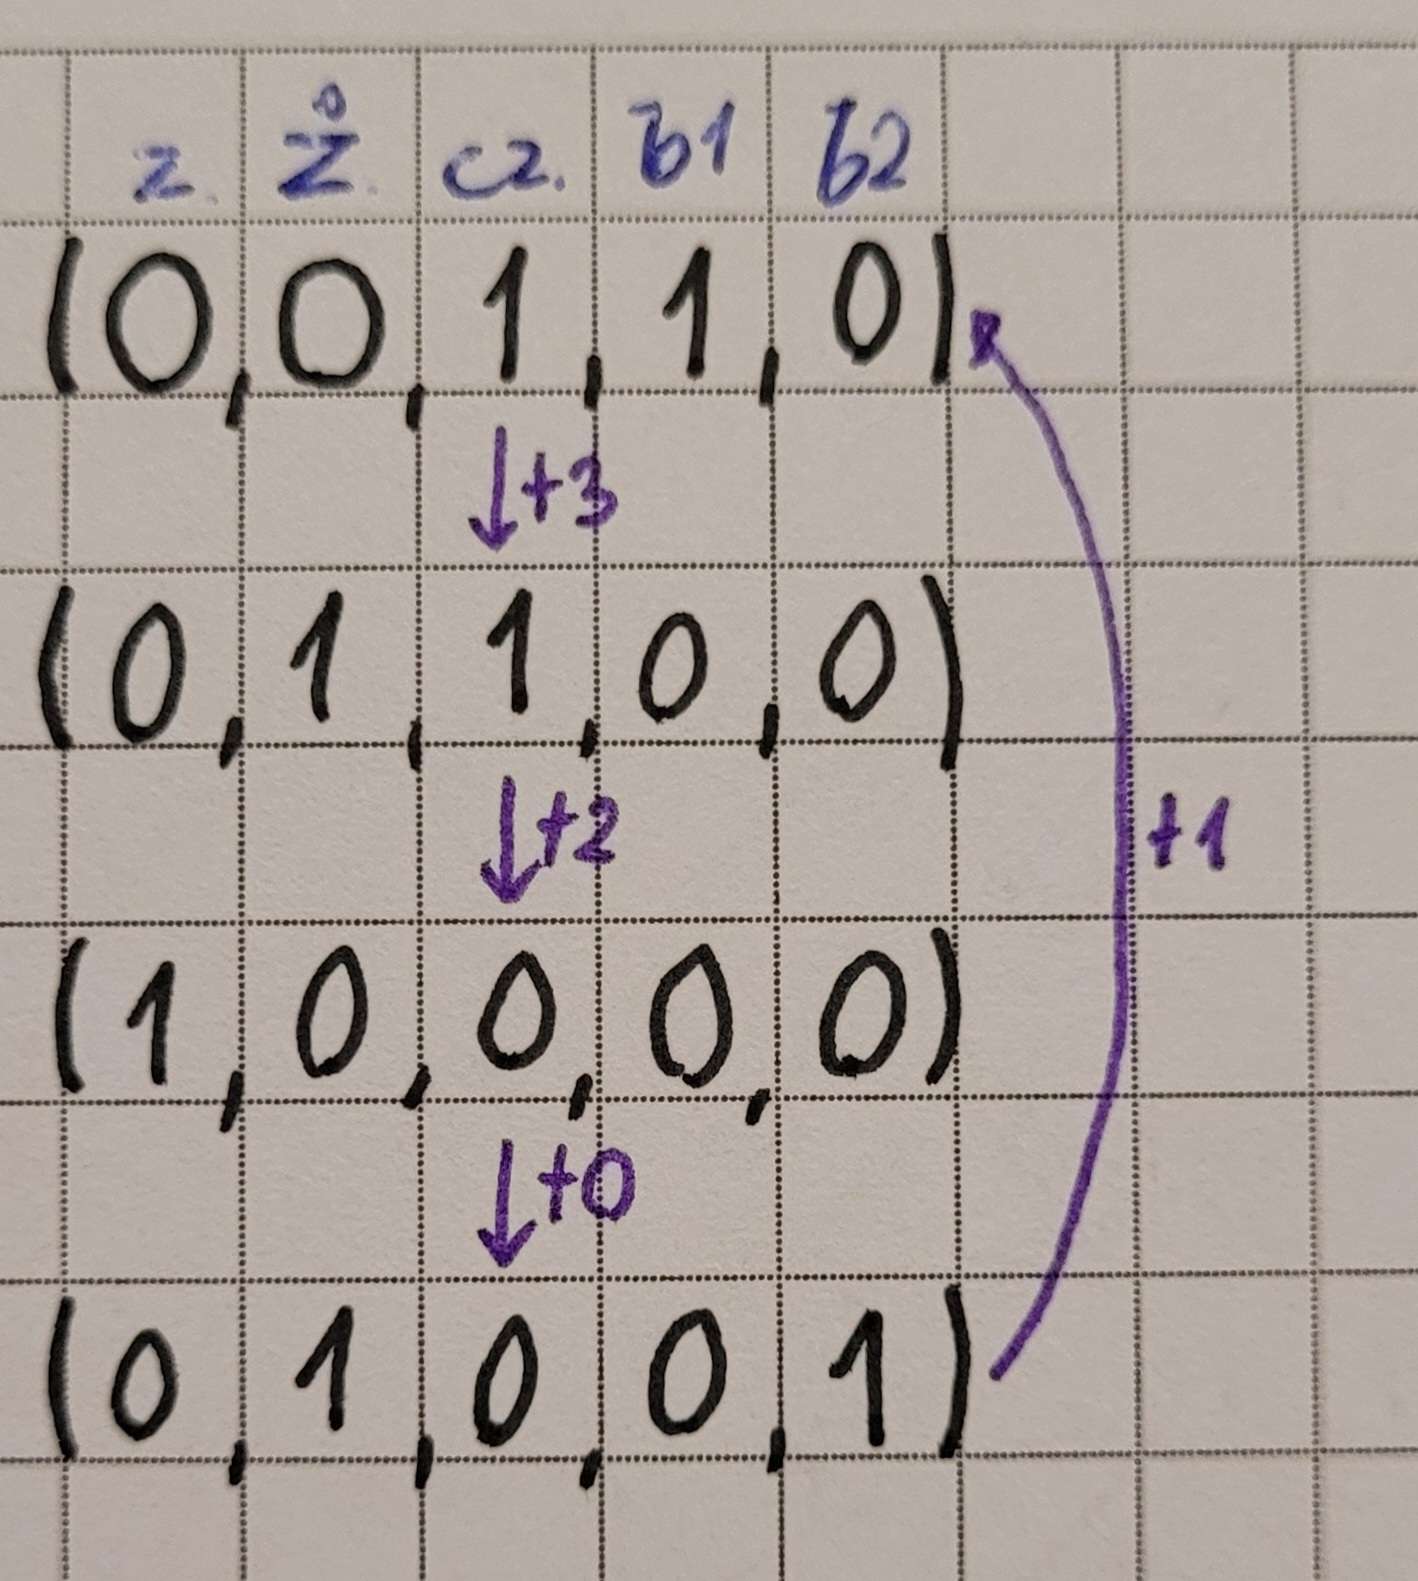 z. Ż. cz. b1 b2
(0, 0, 1, 1, 0)
+3
(0, 1, 1, 0, 0)
+2
+1
(1, 0, 0, 0, 0)
+0
(0, 1, 0, 0, 1)